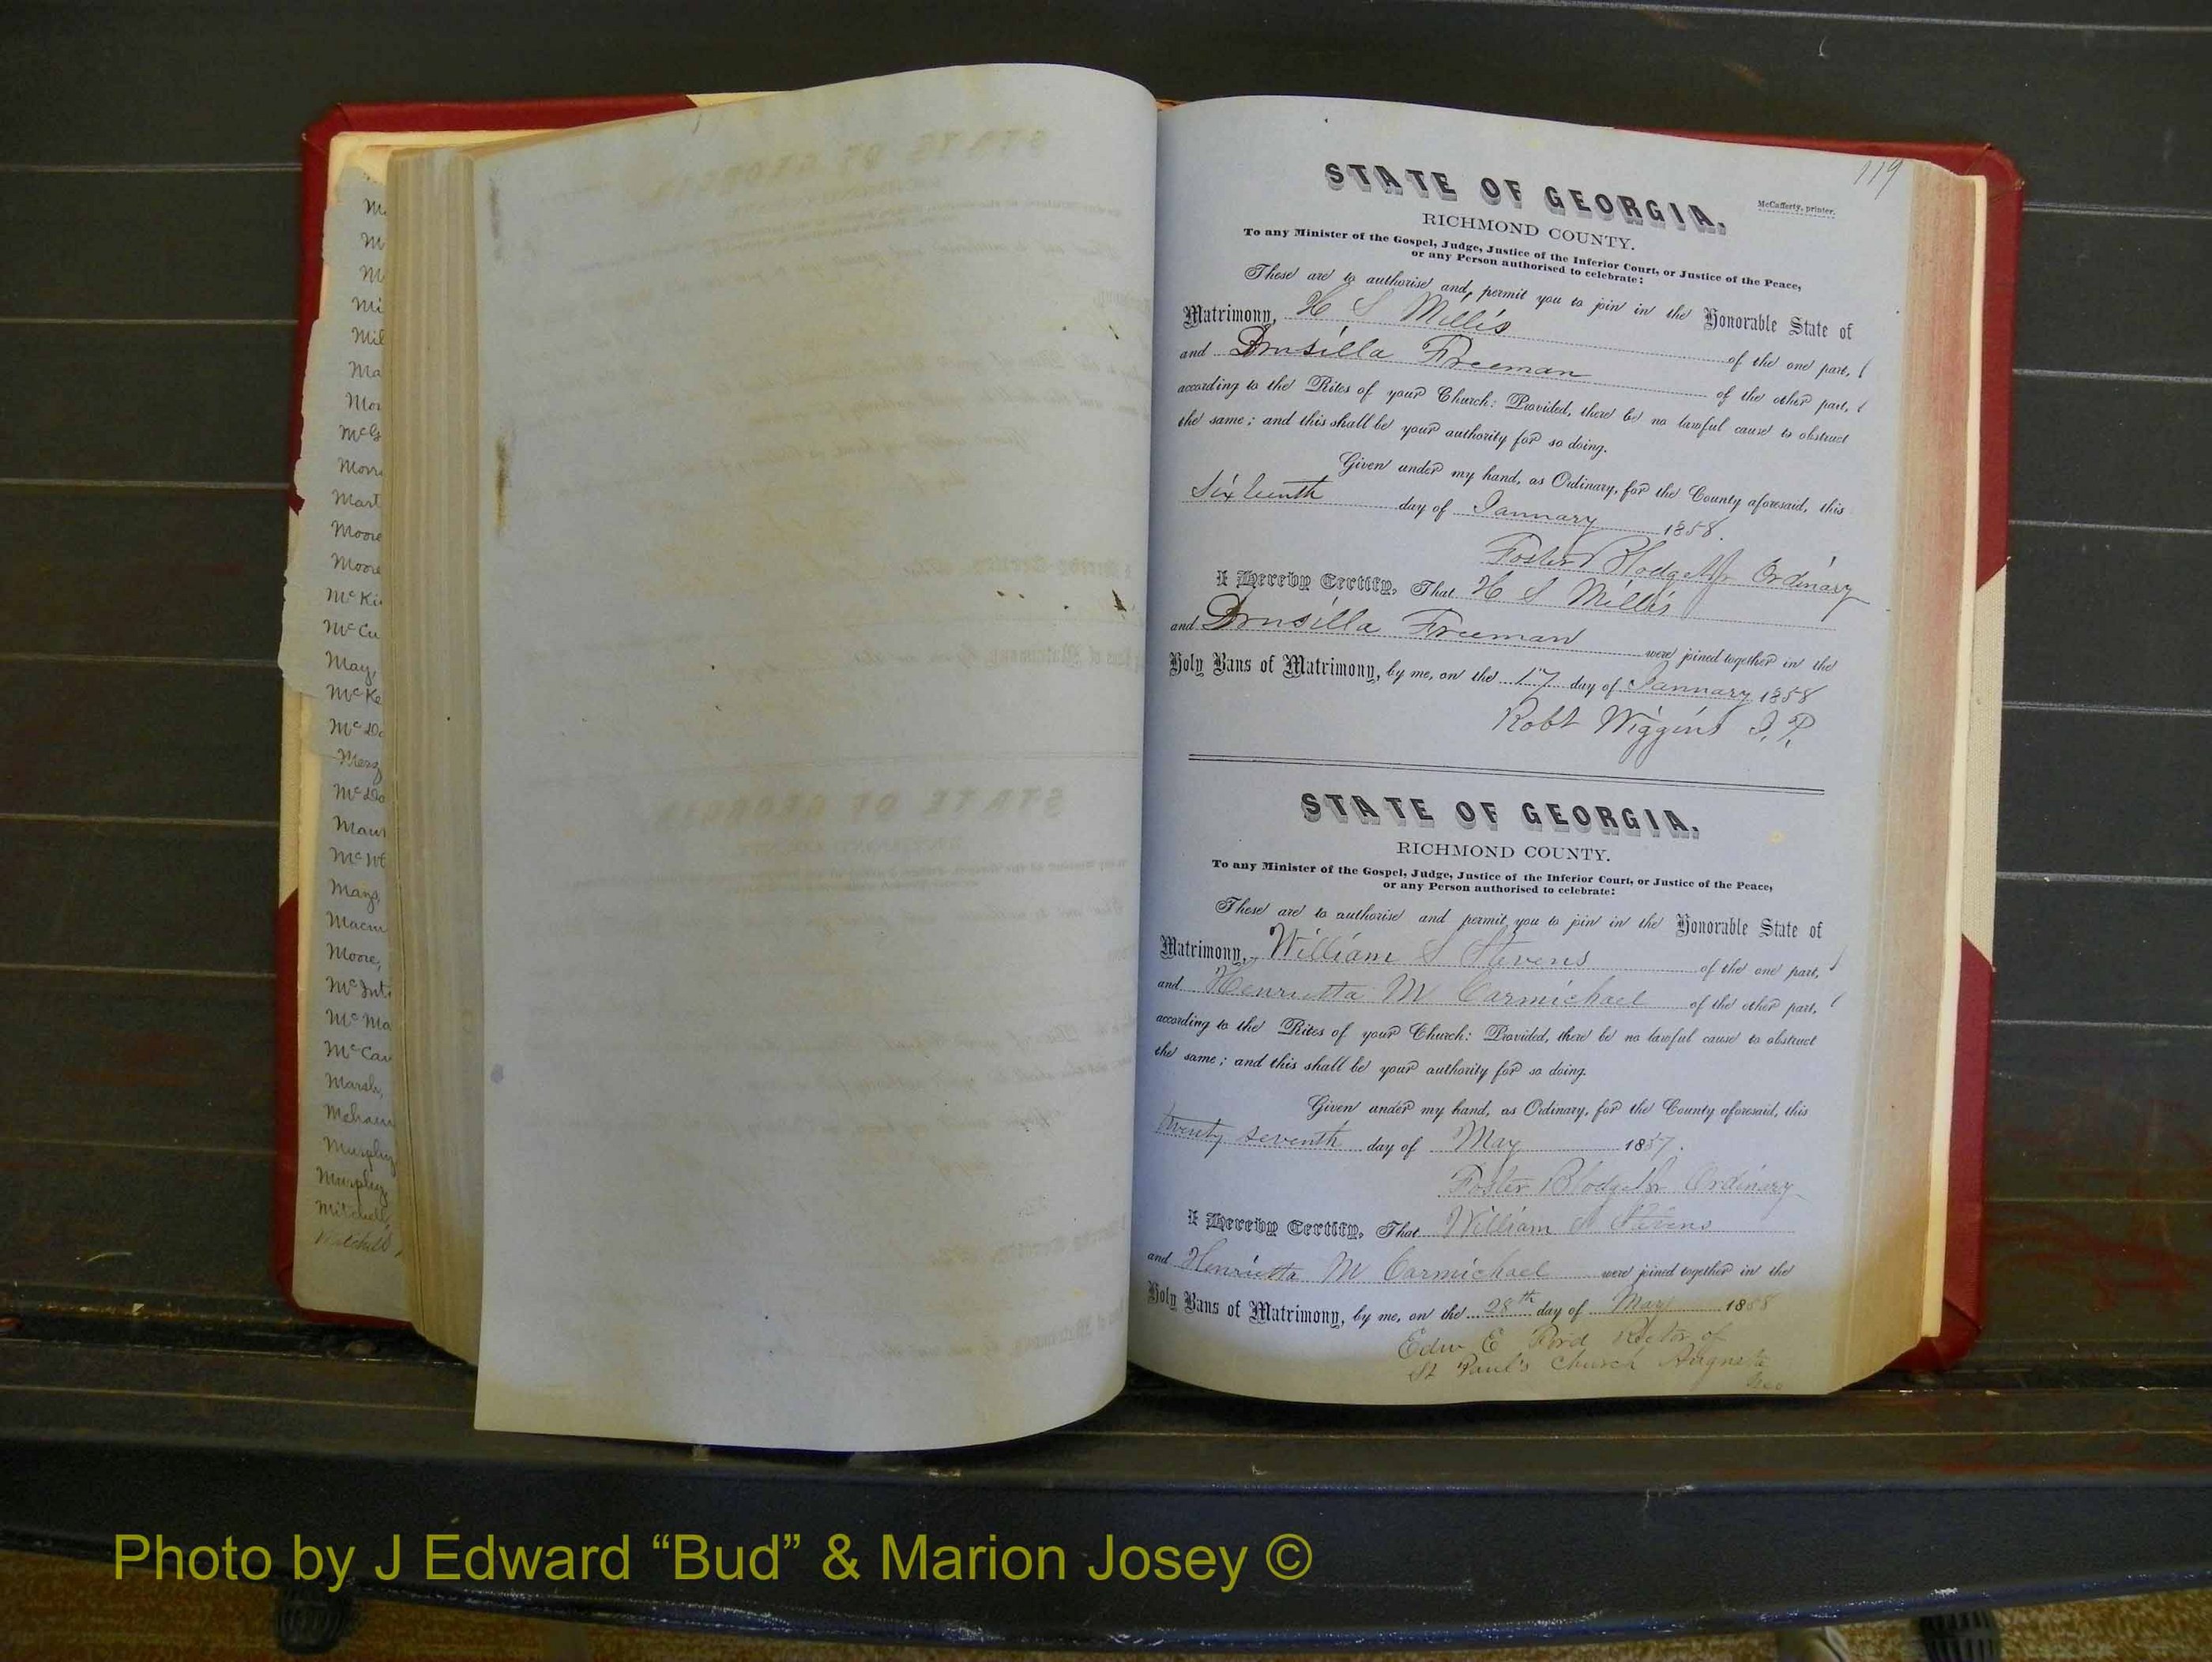 Mc
M
M
Mi
Mil
Ma
Mor
McG
Morri
Mart
Moore
Moore
McKi
McCu
May,
McKe
McDo
Merz
McDo
Maur
McWe
Mays,
Macm
Moore,
McInt
McMa
McCar
Marsh,
Mehann
Murphy
Murphy
Mitchell,
Mitchell,
119
STATE OF GEORGIA.
McCafferty, printer.
RICHMOND COUNTY.
To any Minister of the Gospel, Judge, Justice of the Inferior Court, or Justice of the Peace,
or any Person authorised to celebrate:
These are to authorise and permit you to join in the Honorable State of
Matrimony, H S Millis of the one part,
and Drusilla Freeman of the other part,
according to the Rites of your Church: Provided, there be no lawful cause to obstruct
the same; and this shall be your authority for so doing.
Given under my hand, as Ordinary, for the County aforesaid, this
Sixteenth day of January 1858.
Foster Blodget Jr Ordinary
I Hereby Certify, That H S Millis
and Drusilla Freeman were joined together in the
Holy Bans of Matrimony, by me, on the 17 day of January 1858
Robt Wiggins J. P.
STATE OF GEORGIA.
RICHMOND COUNTY.
To any Minister of the Gospel, Judge, Justice of the Inferior Court, or Justice of the Peace,
or any Person authorised to celebrate:
These are to authorise and permit you to join in the Honorable State of
Matrimony, William S Stevens of the one part,
and Henrietta M Carmichael of the other part,
according to the Rites of your Church: Provided, there be no lawful cause to obstruct
the same; and this shall be your authority for so doing.
Given under my hand, as Ordinary, for the County aforesaid, this
twenty seventh day of May 1857.
Foster Blodget Jr Ordinary
I Hereby Certify, That William S Stevens
and Henrietta M Carmichael were joined together in the
Holy Bans of Matrimony, by me, on the 28th day of May 1858
Edw E Ford Rector of
St Paul's Church Augusta
Geo
Photo by J Edward “Bud” & Marion Josey ©